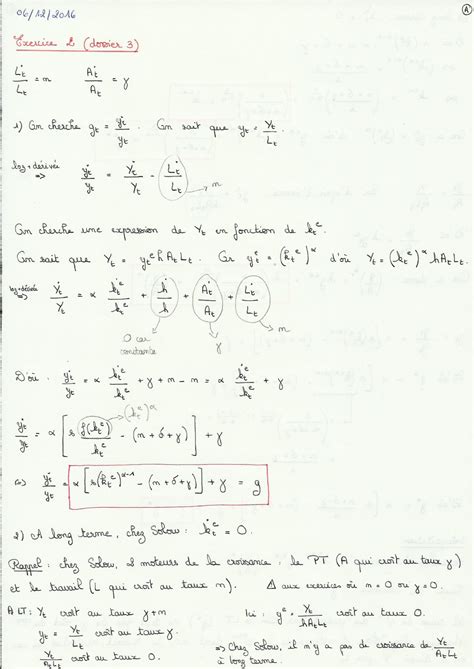 06/12/2016
A
Exercice 2 (dossier 3)
L̇t/Lt = n    Ȧt/At = γ
1) On cherche gt = ẏt/yt . On sait que yt = Yt/Lt
log + dérivée ⇒ ẏt/yt = Ẏt/Yt - L̇t/Lt → n
On cherche une expression de Yt en fonction de kt^e
On sait que Yt = yt^e h At Lt. Or yt^e = (kt^e)^α d'où Yt = (kt^e)^α h At Lt.
log + dérivée ⇒ Ẏt/Yt = α k̇t^e/kt^e + ḣ/h + Ȧt/At + L̇t/Lt
0 car constante    γ    n
D'où : ẏt/yt = α k̇t^e/kt^e + γ + n - n = α k̇t^e/kt^e + γ
(kt^e)^α
ẏt/yt = α [ s f(kt^e)/kt^e - (n + δ + γ) ] + γ
⇔ ẏt/yt = α [ s(kt^e)^α-1 - (n + δ + γ) ] + γ = g
2) A long terme, chez Solow : k̇t^e = 0.
Rappel : chez Solow, 2 moteurs de la croissance : le PT (A qui croît au taux γ)
et le travail (L qui croît au taux n). Δ aux exercices où n = 0 ou γ = 0.
A LT : Yt croît au taux γ + n    Ici : y^e = Yt/hAtLt croît au taux 0.
yt = Yt/Lt croît au taux γ.
⇒ Chez Solow, il n'y a pas de croissance de Yt/AtLt
Yt/AtLt croît au taux 0    à long terme.